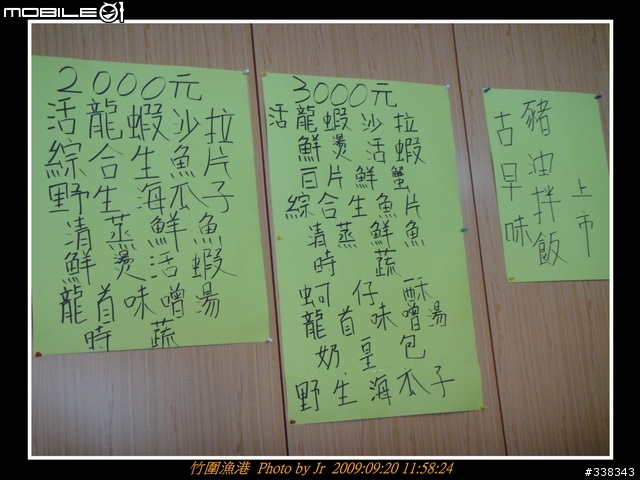 MOBILE01
2000元
活龍蝦沙拉
綜合生魚片
野生海瓜子
清蒸鮮魚
鮮燙活蝦
龍首味噌湯
時蔬
3000元
活龍蝦沙拉
鮮燙活蝦
百片鮮蟹
綜合生魚片
清蒸鮮魚
時蔬
蚵仔酥
龍首味噌湯
奶皇包
野生海瓜子
古早味
豬油拌飯
上市
竹圍漁港 Photo by Jr 2009:09:20 11:58:24
#338343